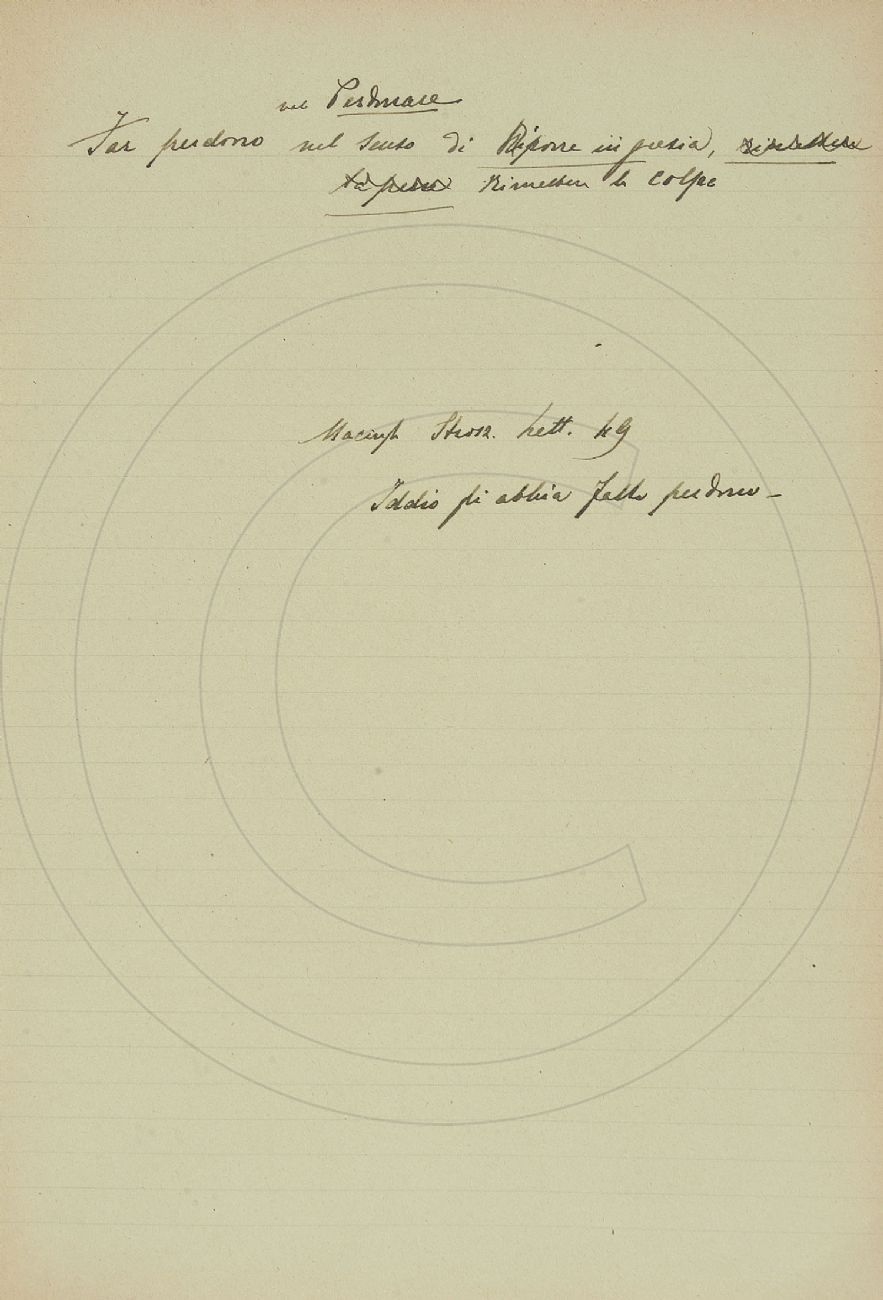 nel Perdonare
Far perdono nel senso di Riporre in grazia, rimettere
la pena Rimettere le colpe
Macingh. Strozz. Lett. 49
Iddio gli abbia fatto perdono –